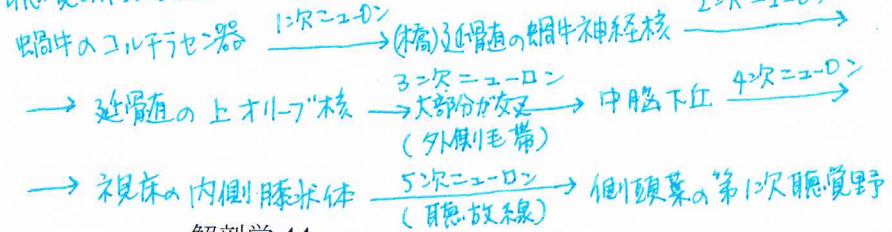 蝸牛のコルチラセン器 1次ニューロン→ (橋)延髄の蝸牛神経核 2次ニューロン→
→ 延髄の上オリーブ核 3次ニューロン 大部分が交叉 (外側毛帯)→ 中脳下丘 4次ニューロン→
→ 視床の内側膝状体 5次ニューロン (聴放線)→ 側頭葉の第1次聴覚野